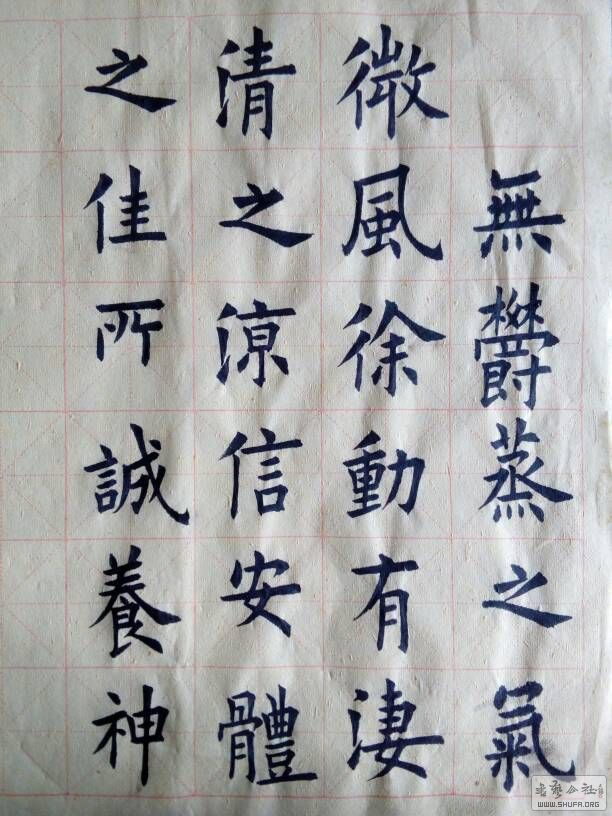 無鬱蒸之氣
微風徐動有淒
清之涼信安體
之佳所誠養神
书艺公社
WWW.SHUFA.ORG